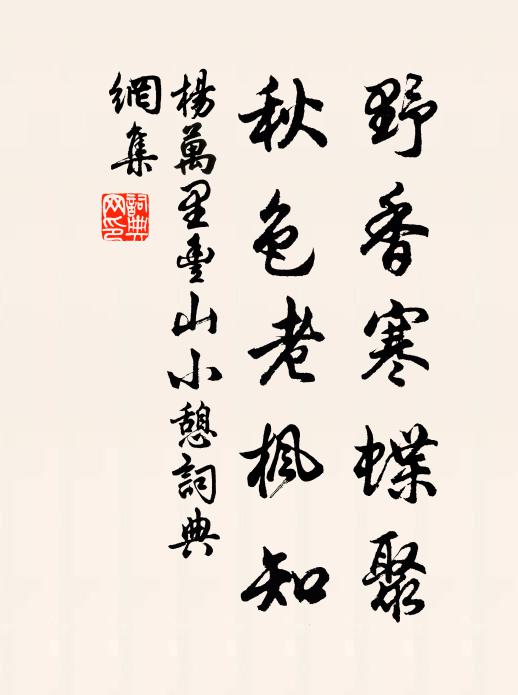 野香寒蝶聚
秋色老楓知
楊萬里豐山小憩詞典
網集
詞典網印